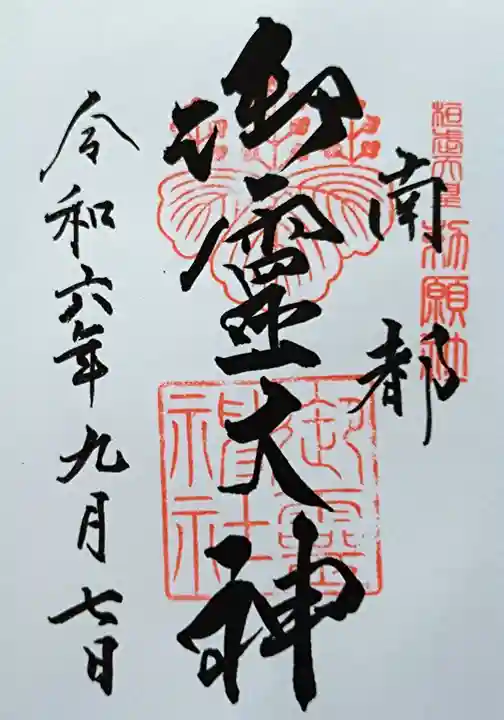 桓武天皇勅願社
南都
御霊大神
御霊神社
令和六年九月七日